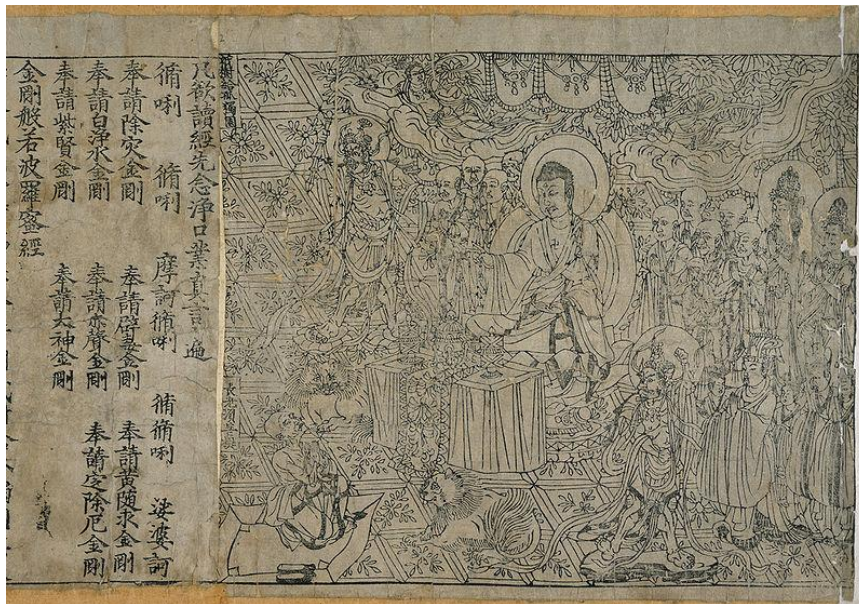 祇樹給孤獨園
長老須菩提
凡欲讀經先念淨口業真言一遍
脩唎 脩唎 摩訶脩唎 脩脩唎 娑婆訶
奉請除災金剛 奉請辟毒金剛 奉請黃隨求金剛
奉請白淨水金剛 奉請赤聲金剛 奉請定除厄金剛
奉請紫賢金剛 奉請大神金剛
金剛般若波羅蜜經